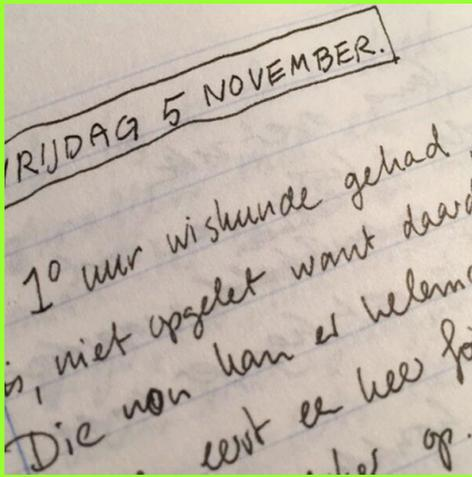 VRIJDAG 5 NOVEMBER.
1º uur wiskunde gehad
niet opgelet want
Die non kan er
eerst een keer
op.